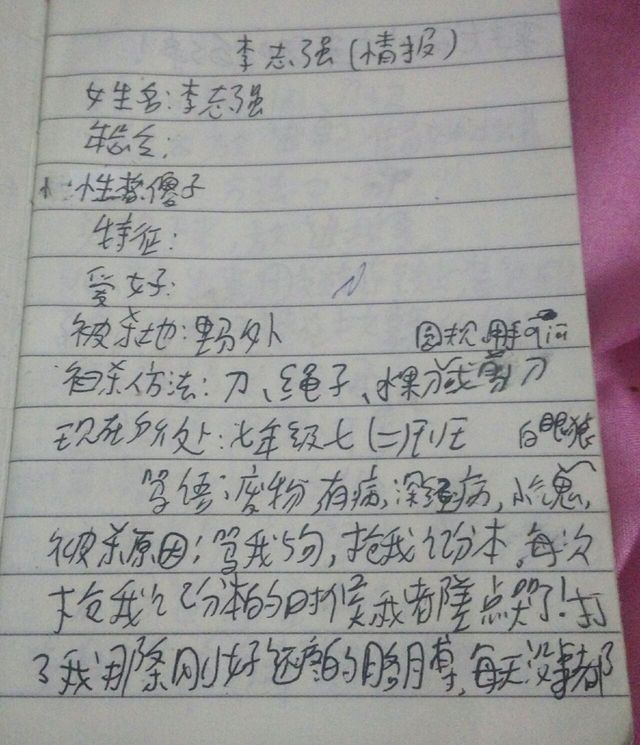 李志强(情报)
姓名:李志强
年令:
性慕傻子
特征:
爱好:
被杀地:野外 圆规 用手qia
被杀仿法:刀、绳子、水果刀或剪刀
现在所处:七年级七(二)班 白眼狼
骂语:废物,有病,深井病,
被杀原因:骂我5句,抢我记分本,每次
抢我记分本的时候我都差点哭了!打
了我那条刚好还疼的胳膊,每天没事都